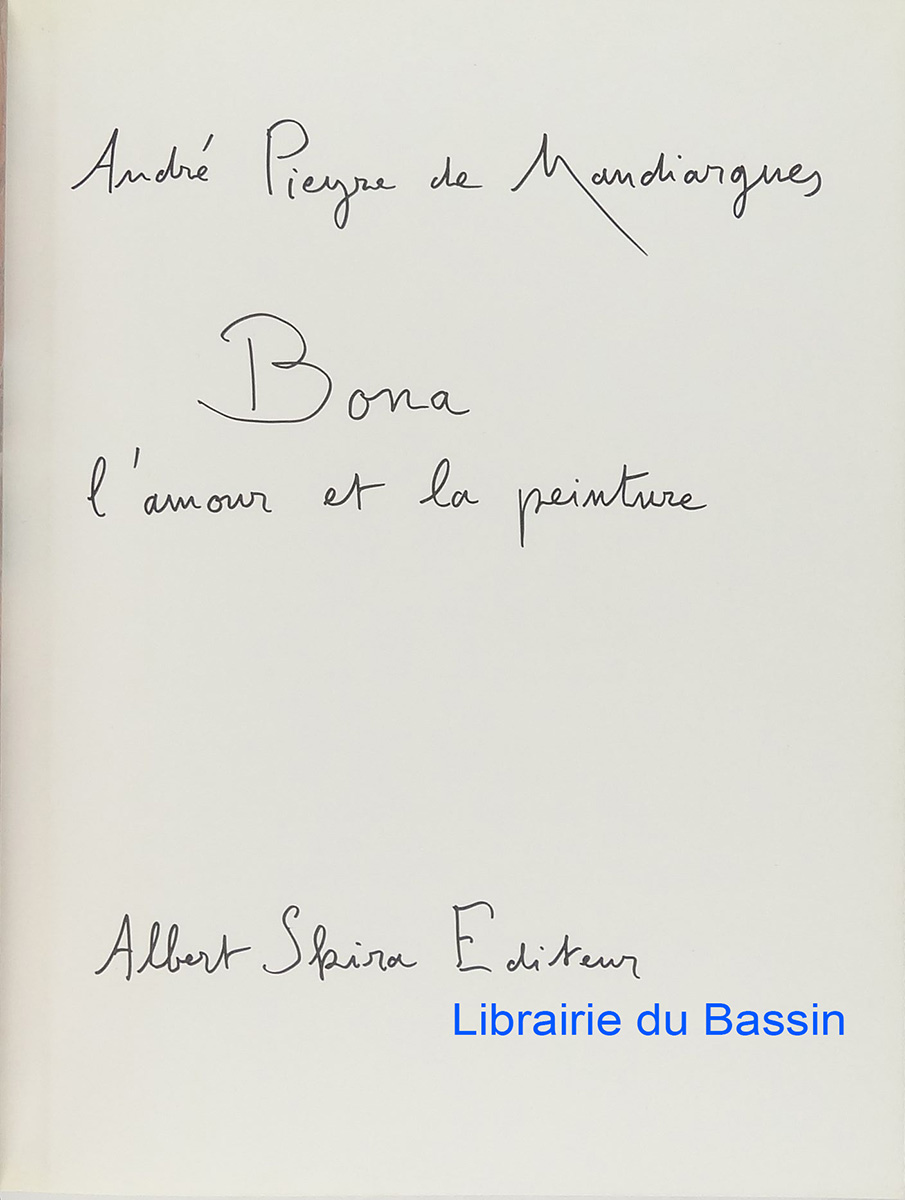 André Pieyre de Mandiargues
Bona
l'amour et la peinture
Albert Skira Editeur
Librairie du Bassin